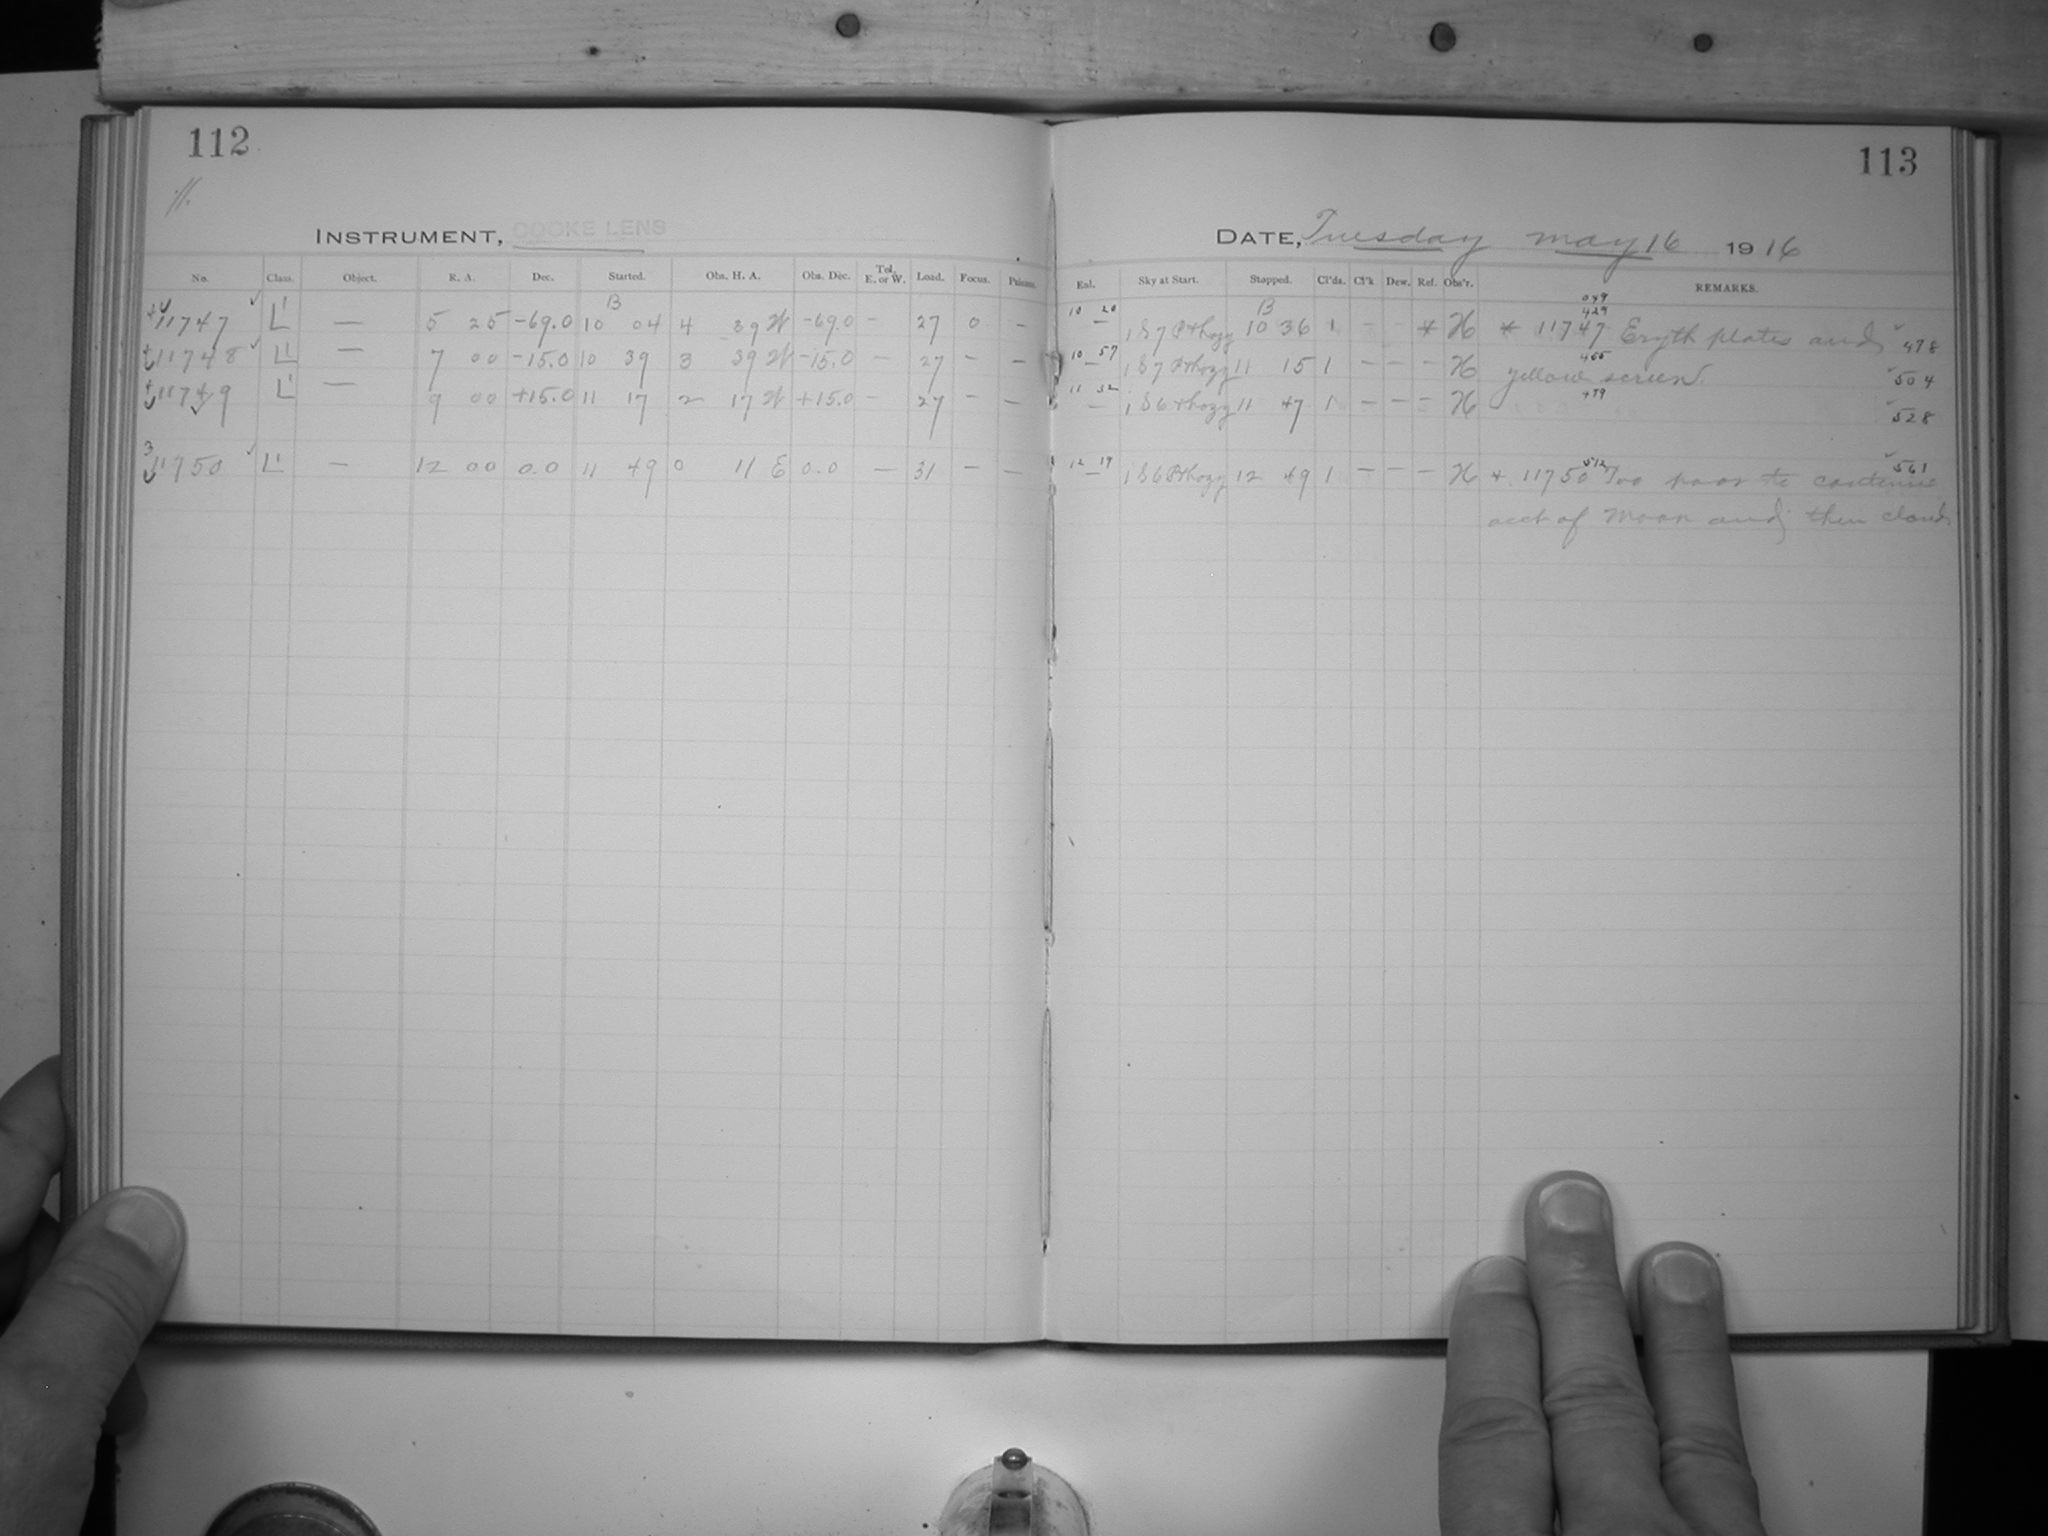 112
113
INSTRUMENT, COOKE LENS
DATE, Tuesday May 16 1916
No. Class. Object. R. A. Dec. Started. Obs. H. A. Obs. Dec. Tel. E. or W. Load. Focus.
Sky at Start. Stopped. Cl'ds. Cl'k Dew. Ref. Obs'r. REMARKS.
B
B
11747 L' — 5 25 -69.0 10 04 4 39 W -69.0 — 27 0 — 10 20 — 1 S7 10 36 1 — — * H * 11747 Eryth plates and 478
429
11748 L' — 7 00 -15.0 10 39 3 39 W -15.0 — 27 — — 10 57 — 1 S7 11 15 1 — — — H yellow screen. 504
455
11749 L' — 9 00 +15.0 11 17 2 17 W +15.0 — 27 — — 11 32 — 1 S6 11 47 1 — — — H 528
479
3
11750 L' — 12 00 0.0 11 49 0 11 E 0.0 — 31 — — 12 19 — 1 S6 12 49 1 — — — H * 11750 Too poor to continue 561
512
acct of Moon and then clouds